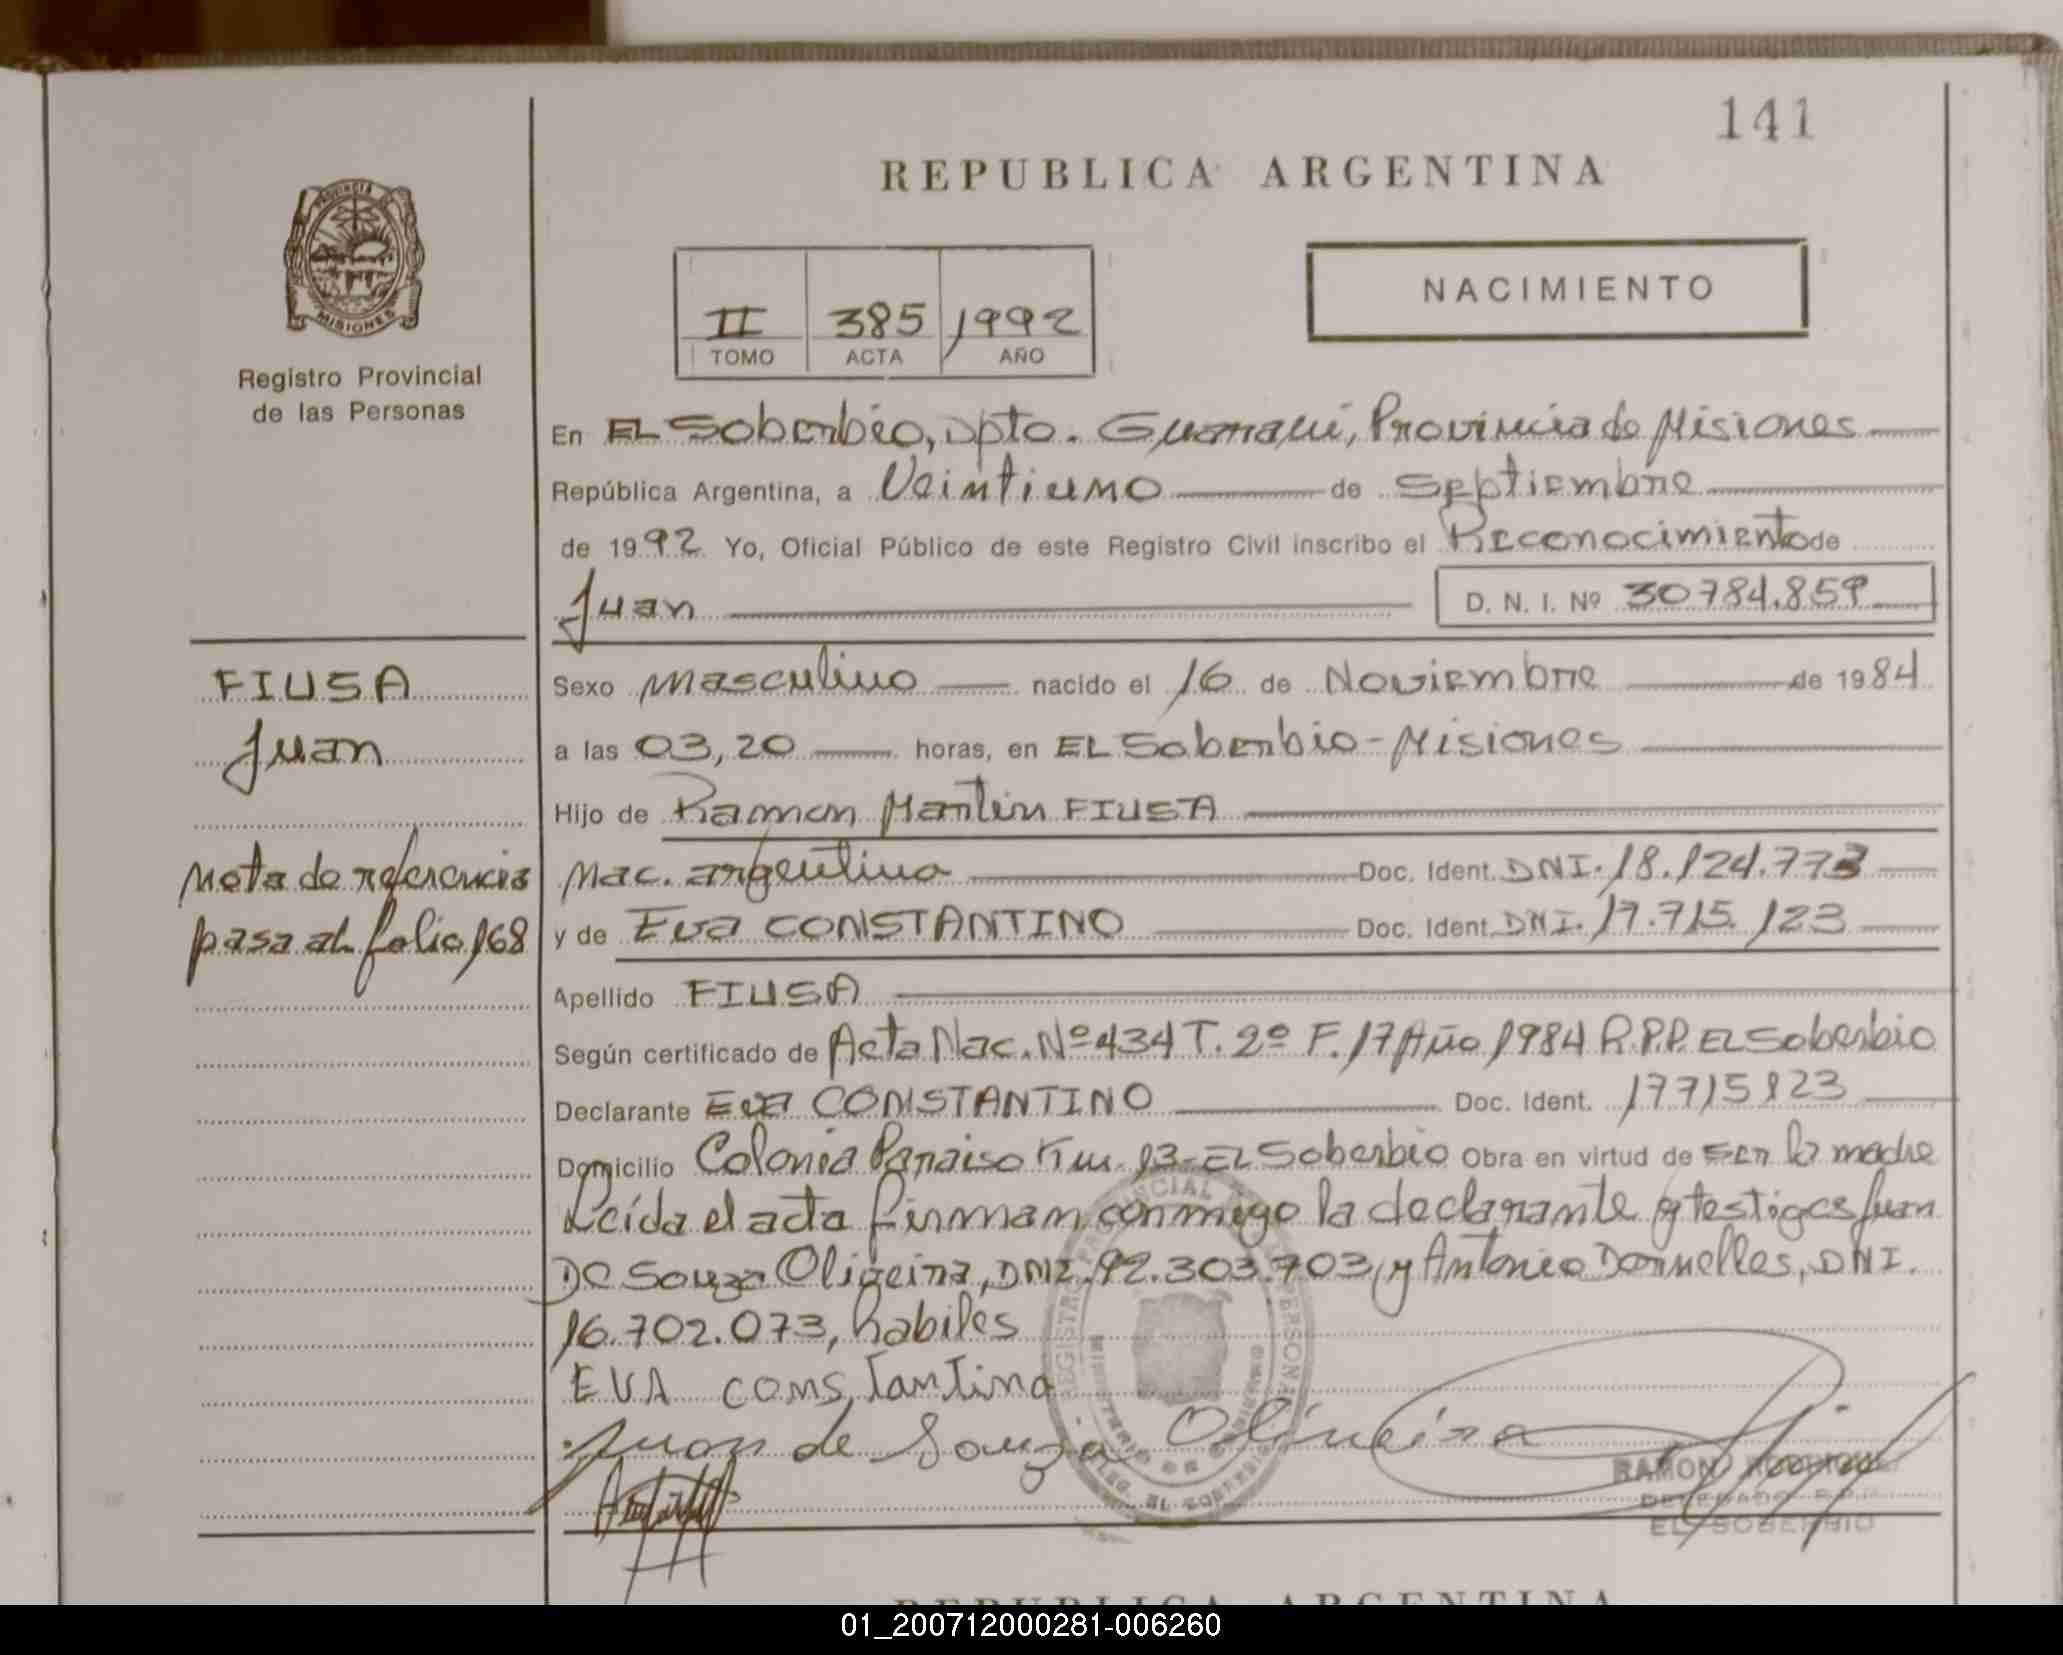 141
REPUBLICA ARGENTINA
PROVINCIA DE
MISIONES
Registro Provincial
de las Personas
II 385 1992
TOMO ACTA AÑO
NACIMIENTO
En EL Soberbio, Dpto. Guarani, Provincia de Misiones
República Argentina, a Veintiuno de Septiembre
de 1992 Yo, Oficial Público de este Registro Civil inscribo el Reconocimiento de
Juan D. N. I. Nº 30784.859
FIUSA
Juan
Nota de referencia
pasa al folio 168
Sexo Masculino nacido el 16 de Noviembre de 1984
a las 03,20 horas, en EL Soberbio - Misiones
Hijo de Ramon Martin FIUSA
Nac. argentino Doc. Ident. DNI. 18.124.773
y de Eva CONSTANTINO Doc. Ident. DNI. 17.715.123
Apellido FIUSA
Según certificado de Acta Nac. Nº 434 T. 2º F. 17 Año 1984 R.P.P. EL Soberbio
Declarante Eva CONSTANTINO Doc. Ident. 17715123
Domicilio Colonia Paraiso Km. 13 - EL Soberbio Obra en virtud de ser la madre
Leída el acta firman conmigo la declarante y testigos Juan
De Souza Oliveira, DNI. 92.303.703, y Antonio Dornelles, DNI.
16.702.073, habiles
EVA constantino
Juan de Souza Oliveira
RAMON RODRIGUEZ
DELEGADO R.P.P.
EL SOBERBIO
REPUBLICA ARGENTINA
01_200712000281-006260